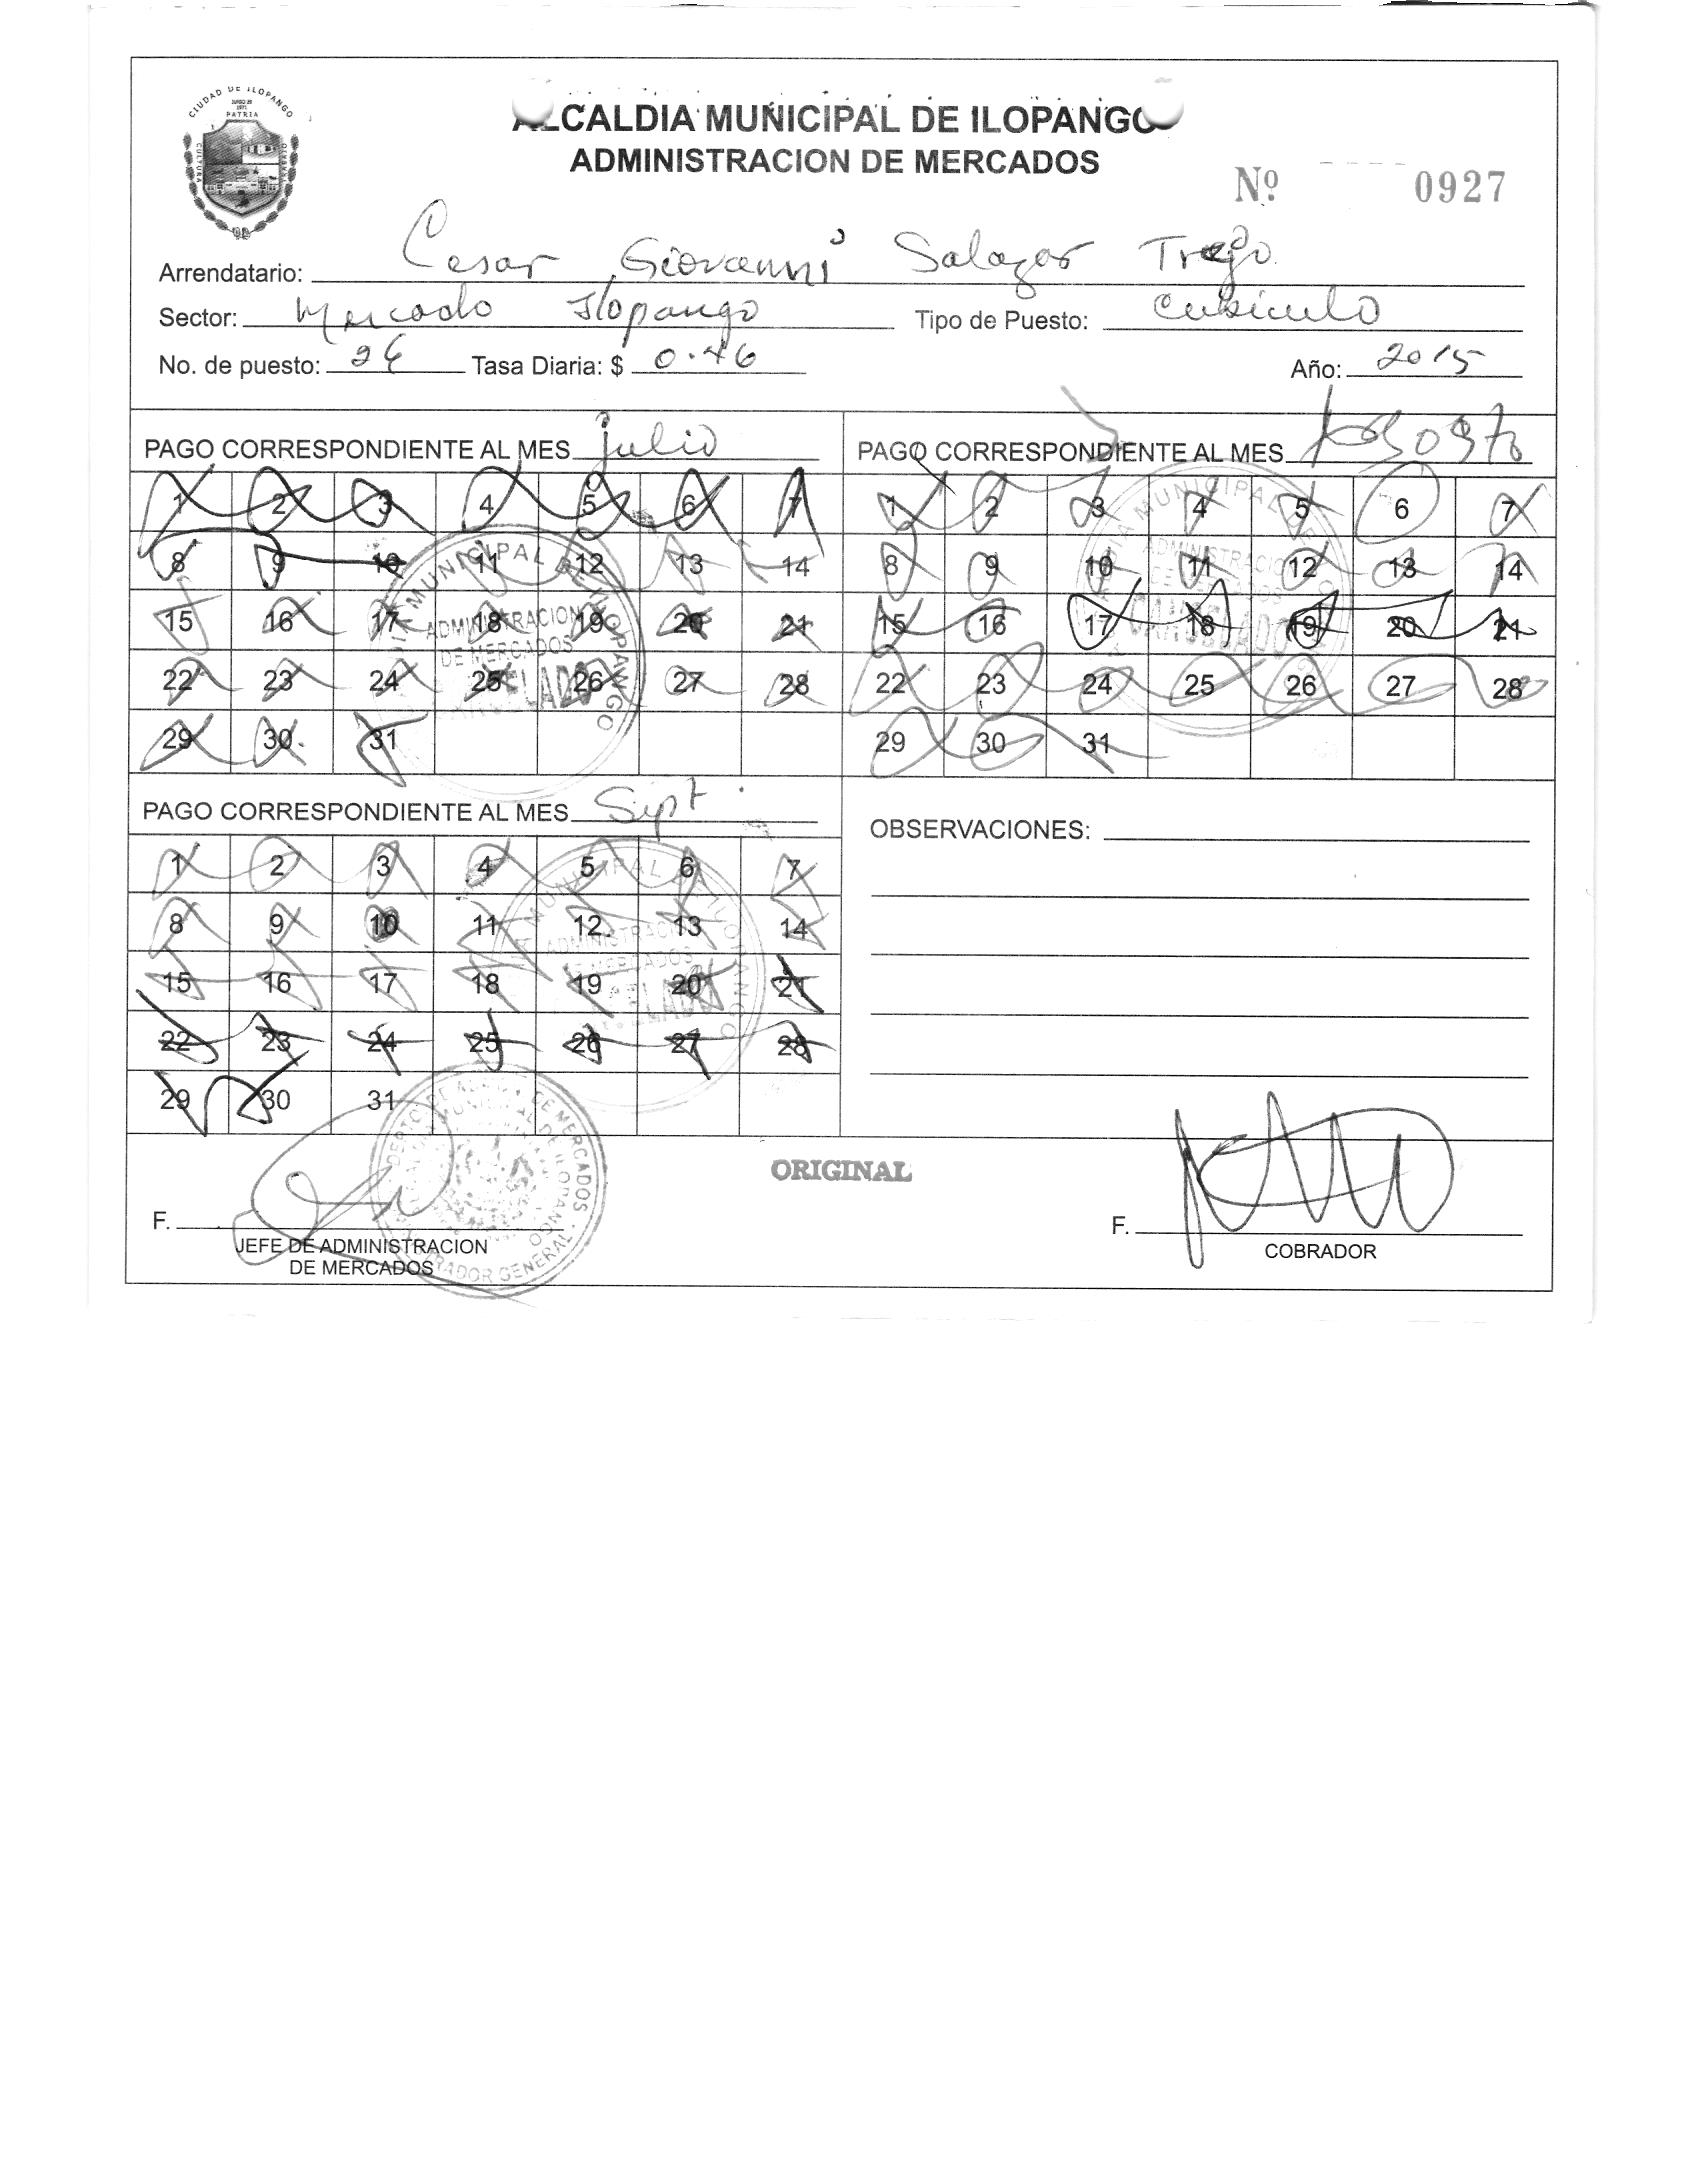 CIUDAD DE ILOPANGO
PATRIA
CULTURA
ALCALDIA MUNICIPAL DE ILOPANGO
ADMINISTRACION DE MERCADOS
Nº 0927
Arrendatario: Cesar Giovanni Salazar Trejo
Sector: Mercado Ilopango Tipo de Puesto: Cubiculo
No. de puesto: Tasa Diaria: $ 0.46 Año: 2015
PAGO CORRESPONDIENTE AL MES julio
1 2 3 4 5 6 7
8 9 10 11 12 13 14
15 16 17 18 19 20 21
22 23 24 25 26 27 28
29 30 31
ADMINISTRACION
DE MERCADOS
CANCELADO
PAGO CORRESPONDIENTE AL MES Agosto
1 2 3 4 5 6 7
8 9 10 11 12 13 14
15 16 17 18 19 20 21
22 23 24 25 26 27 28
29 30 31
PAGO CORRESPONDIENTE AL MES Sept.
1 2 3 4 5 6 7
8 9 10 11 12 13 14
15 16 17 18 19 20 21
22 23 24 25 26 27 28
29 30 31
OBSERVACIONES:
ORIGINAL
F.
JEFE DE ADMINISTRACION
DE MERCADOS
F.
COBRADOR